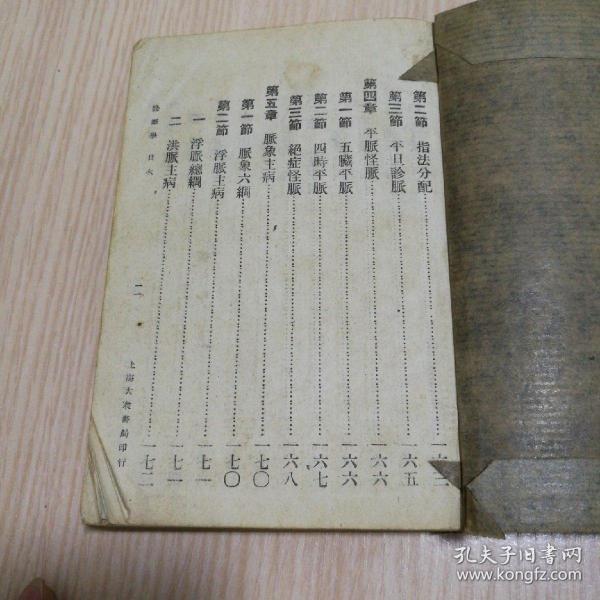 第二節 指法分配
第三節 平旦診脈 一六五
第四章 平脈怪脈 一六六
第一節 五臟平脈 一六六
第二節 四時平脈 一六七
第三節 絕症怪脈 一六八
第五章 脈象主病 一七〇
第一節 脈象六綱 一七〇
第二節 浮脈主病 一七一
一 浮脈總綱 一七一
二 洪脈主病 一七二
診斷學 目次
二
上海大衆書局印行
孔夫子旧书网
www.kongfz.com